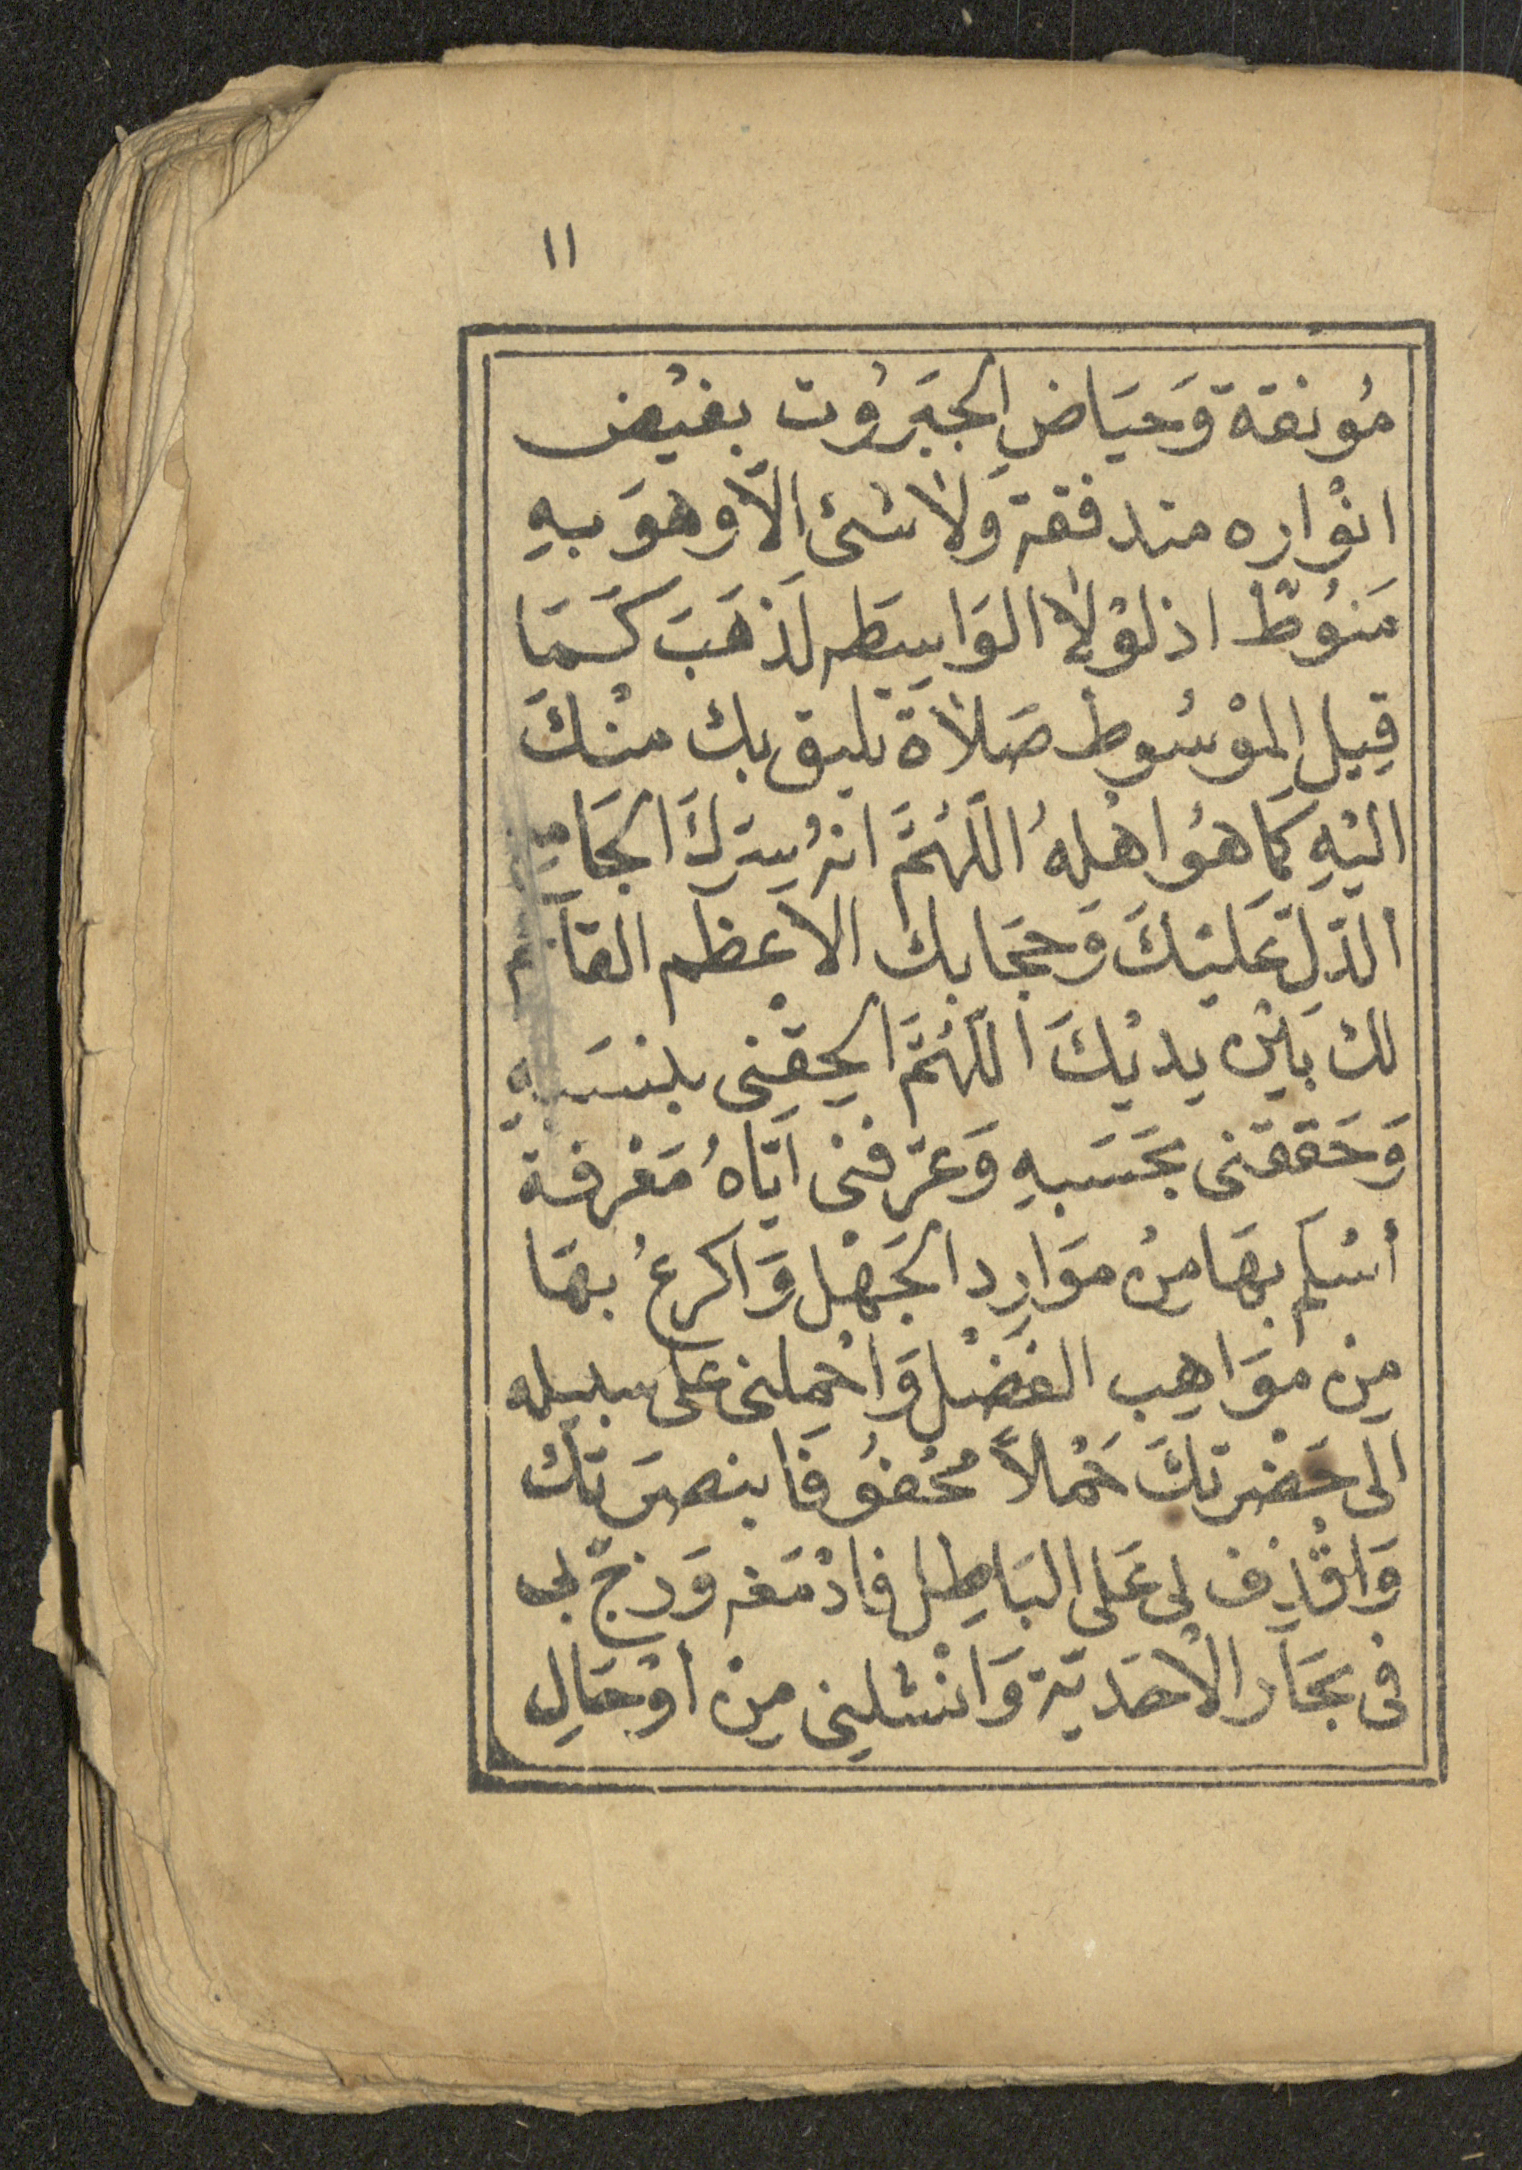 ١١
مُونقة وَحيَاضِ الجبَرُوت بفيْض
انوْاره مندفقة وَلاٰ شئ الاَّ وهوَ بهِ
مَنوُطٌ اذلوْلاٰ الوَاسِطه لَذهَبَ كَمَا
قِيلَ الموْسُوط صَلاٰةً تليق بك منْكَ
اليْهِ كمَا هوُ اهْلهُ اللّهُمَّ انهُ سِرّكَ الجَامِع
الدّلّ عَليْكَ وَحجَابك الاَعظم القآئم
لك بَينْ يديْكَ اللّهُمَّ الحِقْنِى بنسَبهِ
وَحَققّنى بحَسَبهِ وَعَرّفنْى ايّاهُ مَعْرفةً
أسْلَم بهَا مِنْ موَارِد الجَهْل وَاكرعُ بهَا
مِنْ موَاهِب الفَضْل وَاحْمِلنى على سبيله
الى حَضْرتكَ حَمْلاً محْفوُفَا بنصْرَتك
وَاقْذِف بى عَلى البَاطِل فادْمَغه وَزجّ بى
فى بحَار الاْحَديّة وَانْشلِنى مِنْ أوْحَالِ